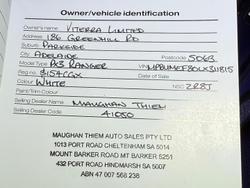 Owner/vehicle identification
Owner's name VITERRA LIMITED
Address 186 GREENHILL RD
Suburb PARKSIDE
City ADELAIDE Postcode 5063
Model Type PX3 RANGER
Reg. S154CGX
Colour WHITE
Paint/Trim Colour
Selling Dealer Name MAUGHAN THIEM
Selling Dealer Code 41050
MAUGHAN THIEM AUTO SALES PTY LTD
1013 PORT ROAD CHELTENHAM SA 5014
MOUNT BARKER ROAD MT BARKER 5251
432 PORT ROAD HINDMARSH SA 5007
ABN 47 007 568 238